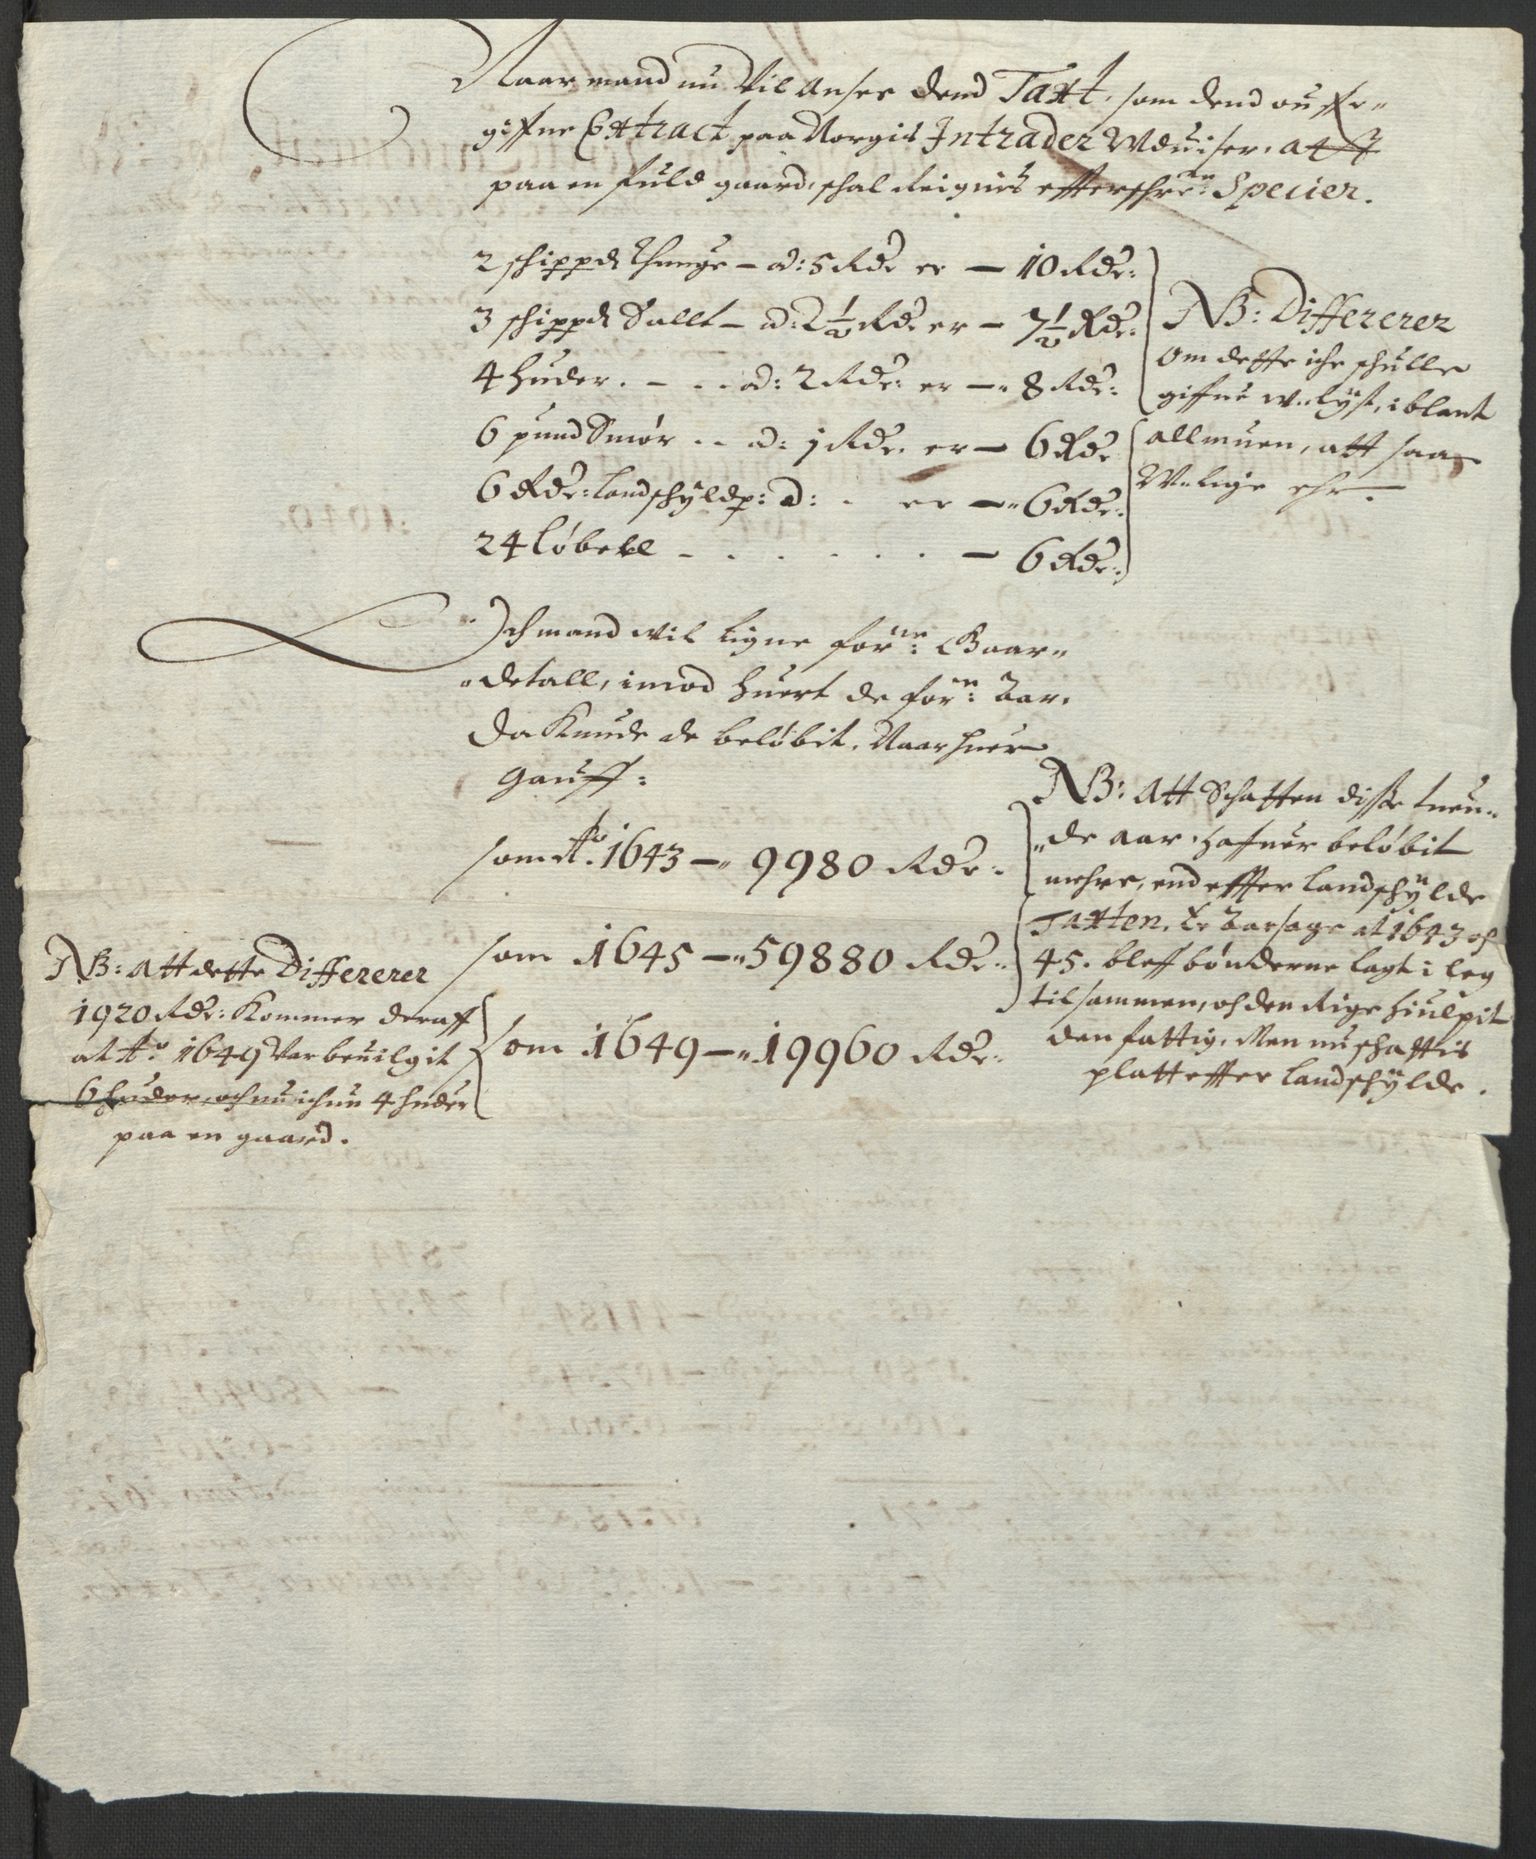 Naar mand nu vil ansee dend Taxt, som dend ouffr-
giffne Extract paa Norgis Intrader Udviser, att
paa en fuld gaard, schal Reignis effterschrne: Specier.
2 schippd Thunge – ad: 5 Rdr er – 10 Rdr:
3 schippd Sallt – ad: 2½ Rdr er – 7½ Rdr:
4 huder. – . . ad: 2 Rdr: er – 8 Rdr:
6 pund Smør . . ad: 1 Rdr. er – 6 Rdr
6 Rdr: landschyld p: ad: . er – 6 Rdr:
24 løbell – . . . . . . – 6 Rdr:
NB: Differerer
om dette iche schulle
giffue w-lyst, i blant
allmuen, att saa
W-lige ehr.
Och mand vil ligne forne: Gaar-
detall, imod huert de forne: Aar,
Da Kunde de beløbit, Naar huer
gauff:
som Ao. 1643 – 9980 Rdr:
som 1645 – 59880 Rdr:
som 1649 – 19960 Rdr:
NB: Att Schatten disse tuen-
de aar hafuer beløbit
mehre, end effter landschylde
Taxten, Er Aarsage at 1643 och
45. bleff bønderne lagt i leg
tilsammen, och den Rige hiulpit
den fattig, Men nu schattis
platt effter landschylde.
NB: Att dette Differerer
1920 Rdr: Kommer deraff
at Ao. 1649 Var beuilgit
6 huder, och nu ichun 4 huder
paa en gaard.